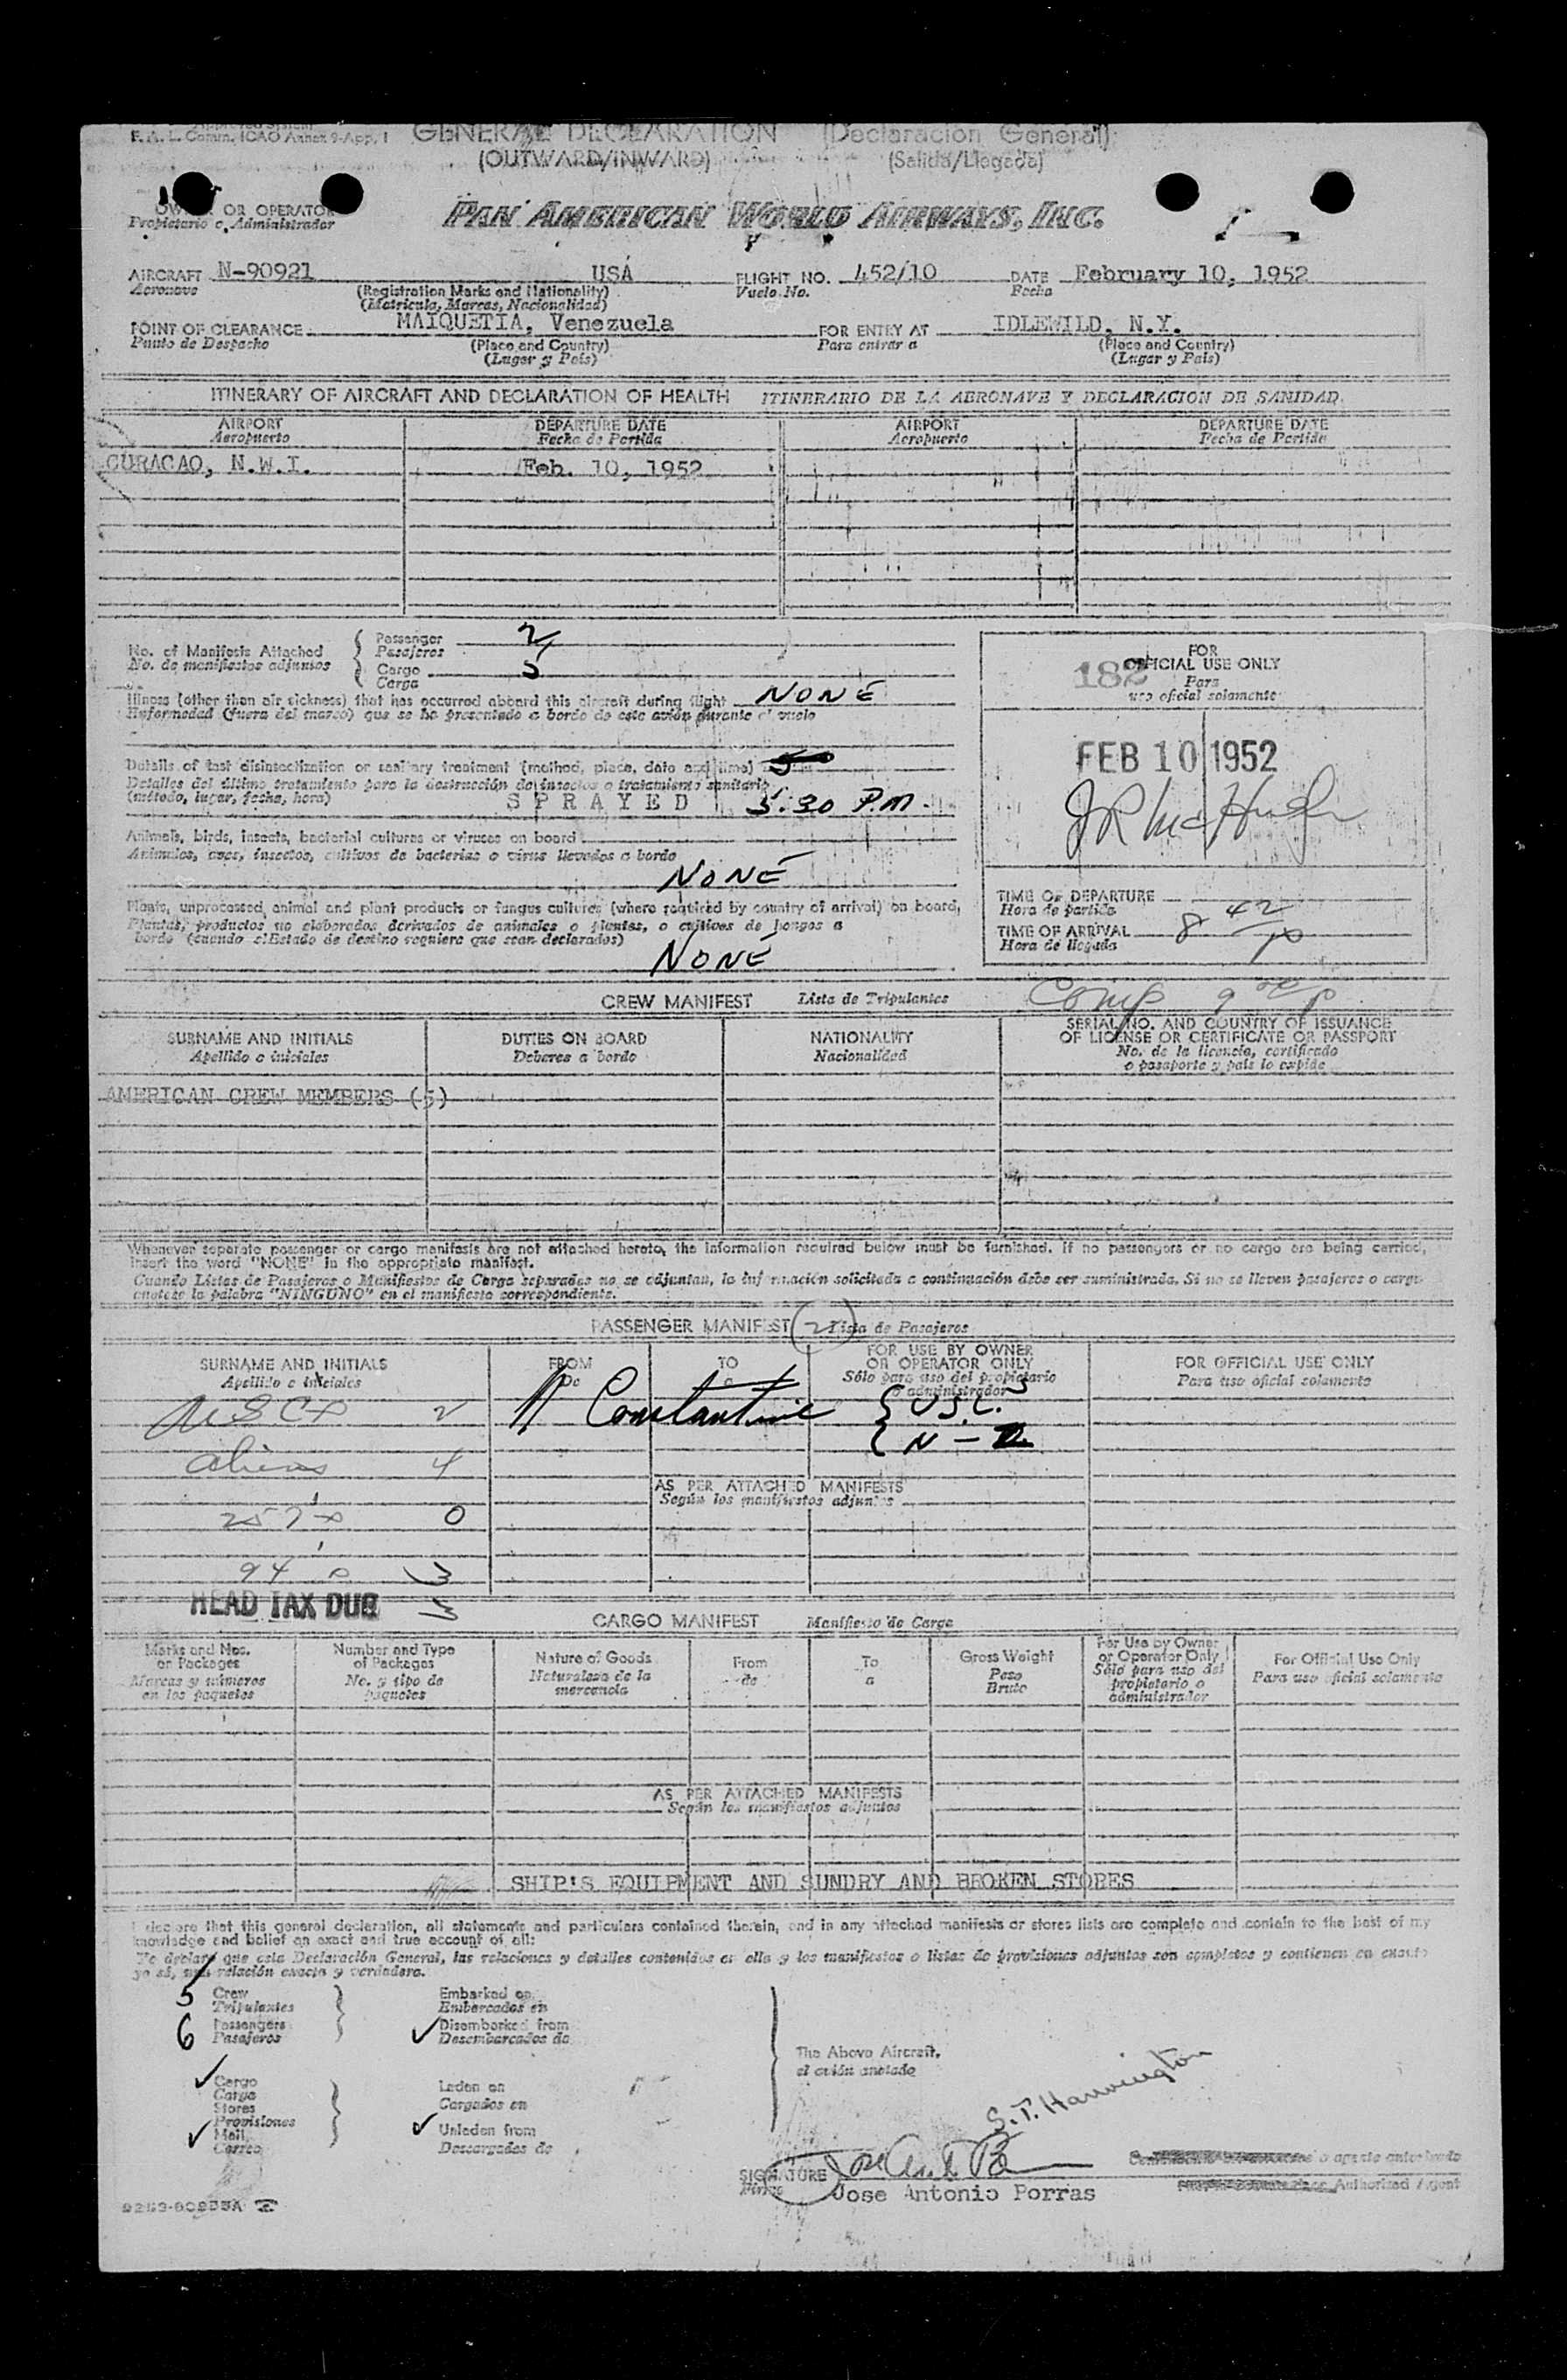 F. A. L. Comm. ICAO Annex 9-App. I
GENERAL DECLARATION (Declaración General)
(OUTWARD/INWARD) (Salida/Llegada)
OWNER OR OPERATOR
Propietario o Administrador
PAN AMERICAN WORLD AIRWAYS, INC.
AIRCRAFT N-90921 USA FLIGHT NO. 452/10 DATE February 10, 1952
Aeronave (Registration Marks and Nationality) Vuelo No. Fecha
(Matricula, Marcas, Nacionalidad)
POINT OF CLEARANCE MAIQUETIA, Venezuela FOR ENTRY AT IDLEWILD, N.Y.
Punto de Despacho (Place and Country) Para entrar a (Place and Country)
(Lugar y País) (Lugar y País)
ITINERARY OF AIRCRAFT AND DECLARATION OF HEALTH ITINERARIO DE LA AERONAVE Y DECLARACION DE SANIDAD
AIRPORT DEPARTURE DATE AIRPORT DEPARTURE DATE
Aeropuerto Fecha de Partida Aeropuerto Fecha de Partida
CURACAO, N.W.I. Feb. 10, 1952
No. of Manifests Attached
No. de manifiestos adjuntos
Passenger 2
Pasajeros
Cargo 5
Carga
Illness (other than air sickness) that has occurred aboard this aircraft during flight NONE
Enfermedad (fuera del mareo) que se ha presentado a bordo de este avión durante el vuelo
Details of last disinsectization or sanitary treatment (method, place, date and time)
Detalles del último tratamiento para la destrucción de insectos o tratamiento sanitario
(método, lugar, fecha, hora) SPRAYED 5:30 P.M.
Animals, birds, insects, bacterial cultures or viruses on board
Animales, aves, insectos, cultivos de bacterias o virus llevados a bordo
NONE
Plants, unprocessed animal and plant products or fungus cultures (where required by country of arrival) on board,
Plantas, productos no elaborados derivados de animales o plantas, o cultivos de hongos a
bordo (cuando el Estado de destino requiera que sean declarados)
NONE
FOR
OFFICIAL USE ONLY
182
Para
uso oficial solamente
FEB 10 1952
J R McHugh
TIME OF DEPARTURE
Hora de partida
TIME OF ARRIVAL 8 42 p
Hora de llegada
CREW MANIFEST Lista de Tripulantes Comp 9
SURNAME AND INITIALS DUTIES ON BOARD NATIONALITY SERIAL NO. AND COUNTRY OF ISSUANCE
OF LICENSE OR CERTIFICATE OR PASSPORT
Apellido o iniciales Deberes a bordo Nacionalidad No. de la licencia, certificado
o pasaporte y país lo expide
AMERICAN CREW MEMBERS (5)
Whenever separate passenger or cargo manifests are not attached hereto, the information required below must be furnished. If no passengers or no cargo are being carried,
insert the word "NONE" in the appropriate manifest.
Cuando Listas de Pasajeros o Manifiestos de Carga separados no se adjuntan, la información solicitada a continuación debe ser suministrada. Si no se lleven pasajeros o carga
anotese la palabra "NINGUNO" en el manifiesto correspondiente.
PASSENGER MANIFEST Lista de Pasajeros
SURNAME AND INITIALS FROM TO FOR USE BY OWNER
OR OPERATOR ONLY FOR OFFICIAL USE ONLY
Apellido e iniciales De a Sólo para uso del propietario
o administrador Para uso oficial solamente
USCs 2 Constantine U.S.C.
N -
aliens 4
AS PER ATTACHED MANIFESTS
Según los manifiestos adjuntos
257 0
94 3
HEAD TAX DUE 3
CARGO MANIFEST Manifiesto de Carga
Marks and Nos.
on Packages
Marcas y números
en los paquetes
Number and Type
of Packages
No. y tipo de
paquetes
Nature of Goods
Naturaleza de la
mercancía
From
de
To
a
Gross Weight
Peso
Bruto
For Use by Owner
or Operator Only
Sólo para uso del
propietario o
administrador
For Official Use Only
Para uso oficial solamente
AS PER ATTACHED MANIFESTS
Según los manifiestos adjuntos
SHIP'S EQUIPMENT AND SUNDRY AND BROKEN STORES
I declare that this general declaration, all statements and particulars contained therein, and in any attached manifests or stores lists are complete and contain to the best of my
knowledge and belief an exact and true account of all:
Yo declaro que esta Declaración General, las relaciones y detalles contenidos en ella y los manifiestos o listas de provisiones adjuntos son completos y contienen en cuanto
yo sé, una relación exacta y verdadera.
5 Crew
Tripulantes
6 Passengers
Pasajeros
Embarked on
Embarcados en
Disembarked from
Desembarcados de
Cargo
Carga
Stores
Provisiones
Mail
Correo
Laden on
Cargados en
Unladen from
Descargados de
The Above Aircraft.
el avión anotado
S. T. Hannington
SIGNATURE
Firma
Jose Antonio Porras
o agente autorizado
Authorized Agent